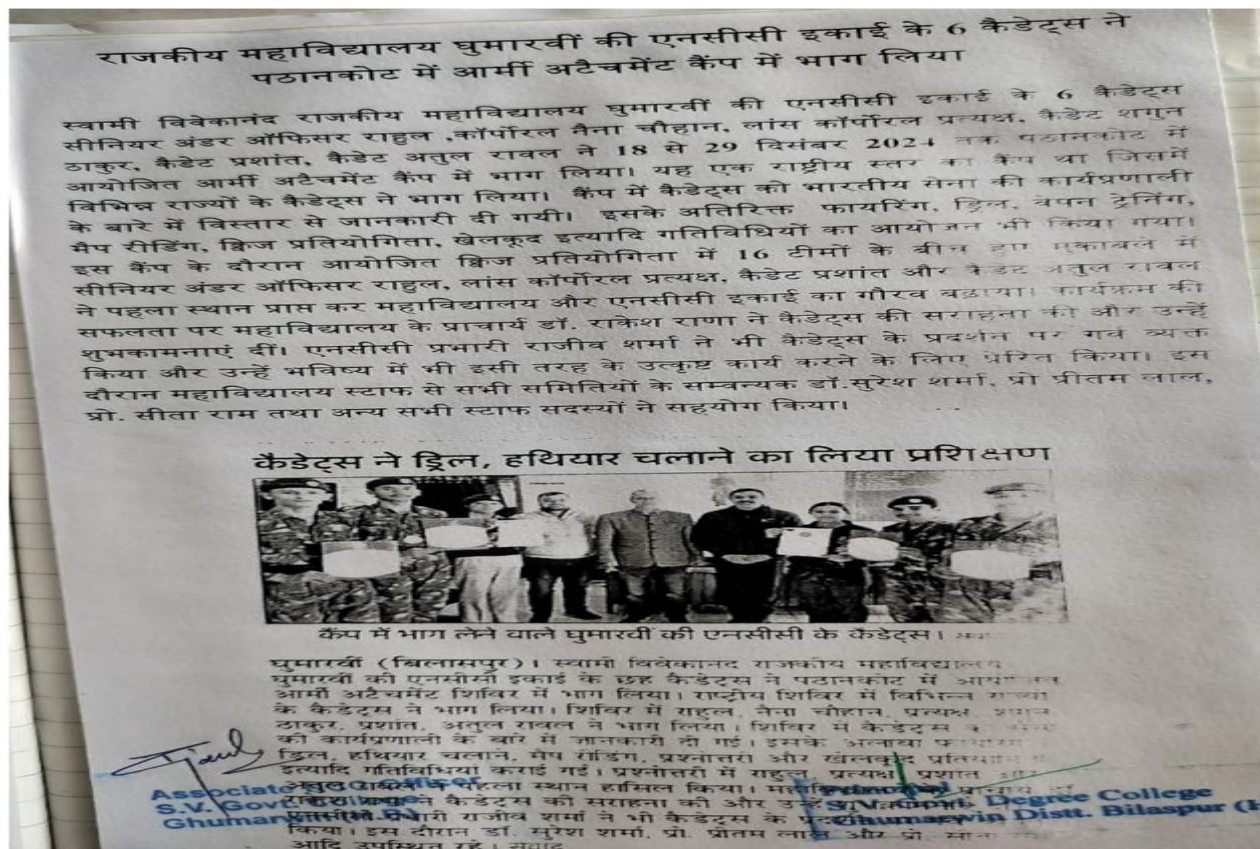 राजकीय महाविद्यालय घुमारवीं की एनसीसी इकाई के 6 कैडेट्स ने
पठानकोट में आर्मी अटैचमेंट कैंप में भाग लिया
स्वामी विवेकानंद राजकीय महाविद्यालय घुमारवीं की एनसीसी इकाई के 6 कैडेट्स
सीनियर अंडर ऑफिसर राहुल ,कॉर्पोरल नैना चौहान, लांस कॉर्पोरल प्रत्यक्ष, कैडेट शगुन
ठाकुर, कैडेट प्रशांत, कैडेट अतुल रावल ने 18 से 29 दिसंबर 2024 तक पठानकोट में
आयोजित आर्मी अटैचमेंट कैंप में भाग लिया। यह एक राष्ट्रीय स्तर का कैंप था जिसमें
विभिन्न राज्यों के कैडेट्स ने भाग लिया। कैंप में कैडेट्स को भारतीय सेना की कार्यप्रणाली
के बारे में विस्तार से जानकारी दी गयी। इसके अतिरिक्त फायरिंग, ड्रिल, वेपन ट्रेनिंग,
मैप रीडिंग, क्विज प्रतियोगिता, खेलकूद इत्यादि गतिविधियों का आयोजन भी किया गया।
इस कैंप के दौरान आयोजित क्विज प्रतियोगिता में 16 टीमों के बीच हुए मुकाबले में
सीनियर अंडर ऑफिसर राहुल, लांस कॉर्पोरल प्रत्यक्ष, कैडेट प्रशांत और कैडेट अतुल रावल
ने पहला स्थान प्राप्त कर महाविद्यालय और एनसीसी इकाई का गौरव बढ़ाया। कार्यक्रम की
सफलता पर महाविद्यालय के प्राचार्य डॉ. राकेश राणा ने कैडेट्स की सराहना की और उन्हें
शुभकामनाएं दीं। एनसीसी प्रभारी राजीव शर्मा ने भी कैडेट्स के प्रदर्शन पर गर्व व्यक्त
किया और उन्हें भविष्य में भी इसी तरह के उत्कृष्ट कार्य करने के लिए प्रेरित किया। इस
दौरान महाविद्यालय स्टाफ से सभी समितियों के सम्वन्यक डॉ.सुरेश शर्मा, प्रो प्रीतम लाल,
प्रो. सीता राम तथा अन्य सभी स्टाफ सदस्यों ने सहयोग किया।
कैडेट्स ने ड्रिल, हथियार चलाने का लिया प्रशिक्षण
कैंप में भाग लेने वाले घुमारवीं की एनसीसी के कैडेट्स।
घुमारवीं (बिलासपुर)। स्वामी विवेकानंद राजकीय महाविद्यालय
घुमारवीं की एनसीसी इकाई के छह कैडेट्स ने पठानकोट में
आर्मी अटैचमेंट शिविर में भाग लिया। राष्ट्रीय शिविर में विभिन्न राज्यों
के कैडेट्स ने भाग लिया। शिविर में राहुल, नैना चौहान, प्रत्यक्ष, शगुन
ठाकुर, प्रशांत, अतुल रावल ने भाग लिया। शिविर में कैडेट्स
की कार्यप्रणाली के बारे में जानकारी दी गई। इसके अलावा
ड्रिल, हथियार चलाने, मैप रीडिंग, प्रश्नोत्तरी और खेलकूद
इत्यादि गतिविधियां कराई गईं। प्रश्नोत्तरी में राहुल, प्रत्यक्ष, प्रशांत और
पहला स्थान हासिल किया।
ने कैडेट्स की सराहना की और
राजीव शर्मा ने भी कैडेट्स के
किया। इस दौरान डॉ. सुरेश शर्मा, प्रो. प्रीतम लाल और प्रो.
आदि उपस्थित रहे। संवाद
Associate Officer
S.V. Govt
Ghumarwin
Principal
S.V. Degree College
Ghumarwin Distt. Bilaspur